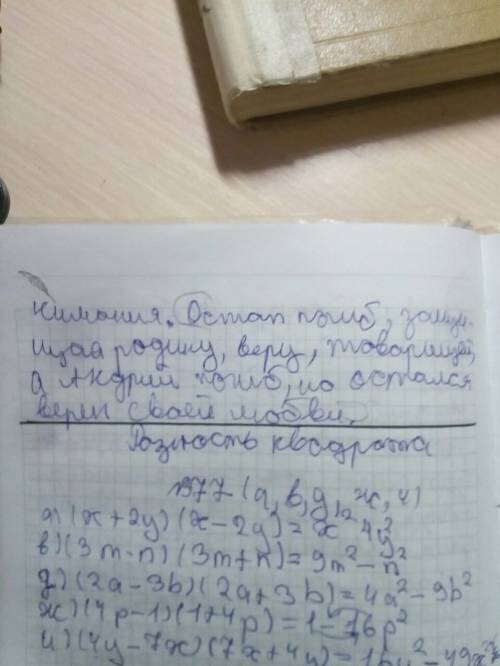 нимания. Остап погиб, защи-
щая родину, веру, товарищей,
а Андрий погиб, но остался
верен своей любви.
Разность квадрата
№377 (а, в, д, ж, и)
а) (x+2y)(x-2y)=x²-4y²
в) (3m-n)(3m+n)=9m²-n²
д) (2a-3b)(2a+3b)=4a²-9b²
ж) (4p-1)(1+4p)=1-16p²
и) (4y-7x)(7x+4y)=16y²-49x²